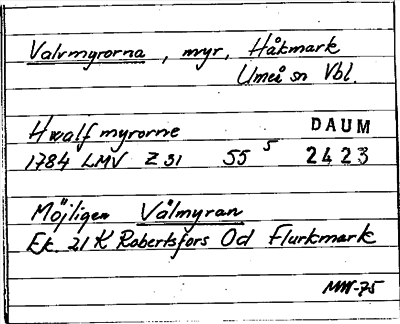 Valvmyrorna, myr, Håkmark
Umeå sn Vbl.
Hwalfmyrorne DAUM
1784 LMV Z 31 55 5 2423
Möjligen Välmyran
Ek. 21 K Robertsfors Od Flurkmark
MW-75